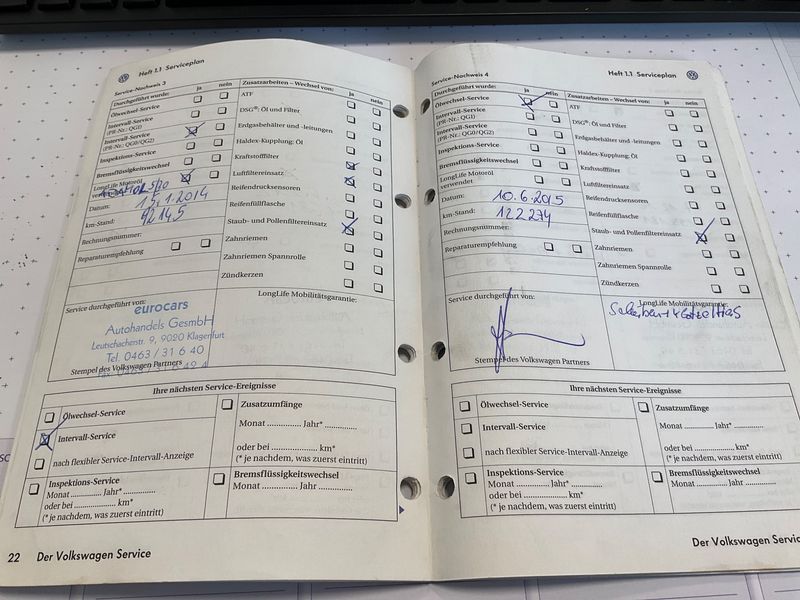 Heft 1.1 Serviceplan
Service-Nachweis 3
Durchgeführt wurde:
ja
nein
Ölwechsel-Service
Intervall-Service
(PR-Nr.: QG1)
Intervall-Service
(PR-Nr.: QG0/QG2)
Inspektions-Service
Bremsflüssigkeitswechsel
LongLife Motoröl
Datum:
15.1.2014
km-Stand:
92145
Rechnungsnummer:
Reparaturempfehlung
Zusatzarbeiten – Wechsel von:
ja
nein
ATF
DSG®: Öl und Filter
Erdgasbehälter und -leitungen
Haldex-Kupplung: Öl
Kraftstofffilter
Luftfiltereinsatz
Reifendrucksensoren
Reifenfüllflasche
Staub- und Pollenfiltereinsatz
Zahnriemen
Zahnriemen Spannrolle
Zündkerzen
Service durchgeführt von:
eurocars
Autohandels GesmbH
Leutschacherstr. 9, 9020 Klagenfurt
Tel. 0463 / 31 6 40
Stempel des Volkswagen Partners
LongLife Mobilitätsgarantie:
Ihre nächsten Service-Ereignisse
Ölwechsel-Service
Intervall-Service
nach flexibler Service-Intervall-Anzeige
Inspektions-Service
Monat ........... Jahr* ............
oder bei ................ km*
(* je nachdem, was zuerst eintritt)
Zusatzumfänge
Monat ............ Jahr* ............
oder bei ................ km*
(* je nachdem, was zuerst eintritt)
Bremsflüssigkeitswechsel
Monat ............ Jahr ............
22 Der Volkswagen Service
Heft 1.1 Serviceplan
Service-Nachweis 4
Durchgeführt wurde:
ja
nein
Ölwechsel-Service
Intervall-Service
(PR-Nr.: QG1)
Intervall-Service
(PR-Nr.: QG0/QG2)
Inspektions-Service
Bremsflüssigkeitswechsel
LongLife Motoröl
verwendet
Datum:
10.6.2015
km-Stand:
122274
Rechnungsnummer:
Reparaturempfehlung
Zusatzarbeiten – Wechsel von:
ja
nein
ATF
DSG®: Öl und Filter
Erdgasbehälter und -leitungen
Haldex-Kupplung: Öl
Kraftstofffilter
Luftfiltereinsatz
Reifendrucksensoren
Reifenfüllflasche
Staub- und Pollenfiltereinsatz
Zahnriemen
Zahnriemen Spannrolle
Zündkerzen
Service durchgeführt von:
Stempel des Volkswagen Partners
LongLife Mobilitätsgarantie:
Ihre nächsten Service-Ereignisse
Ölwechsel-Service
Intervall-Service
nach flexibler Service-Intervall-Anzeige
Inspektions-Service
Monat ........... Jahr* ............
oder bei ................ km*
(* je nachdem, was zuerst eintritt)
Zusatzumfänge
Monat ............ Jahr* ............
oder bei ................ km*
(* je nachdem, was zuerst eintritt)
Bremsflüssigkeitswechsel
Monat ............ Jahr ............
Der Volkswagen Servic